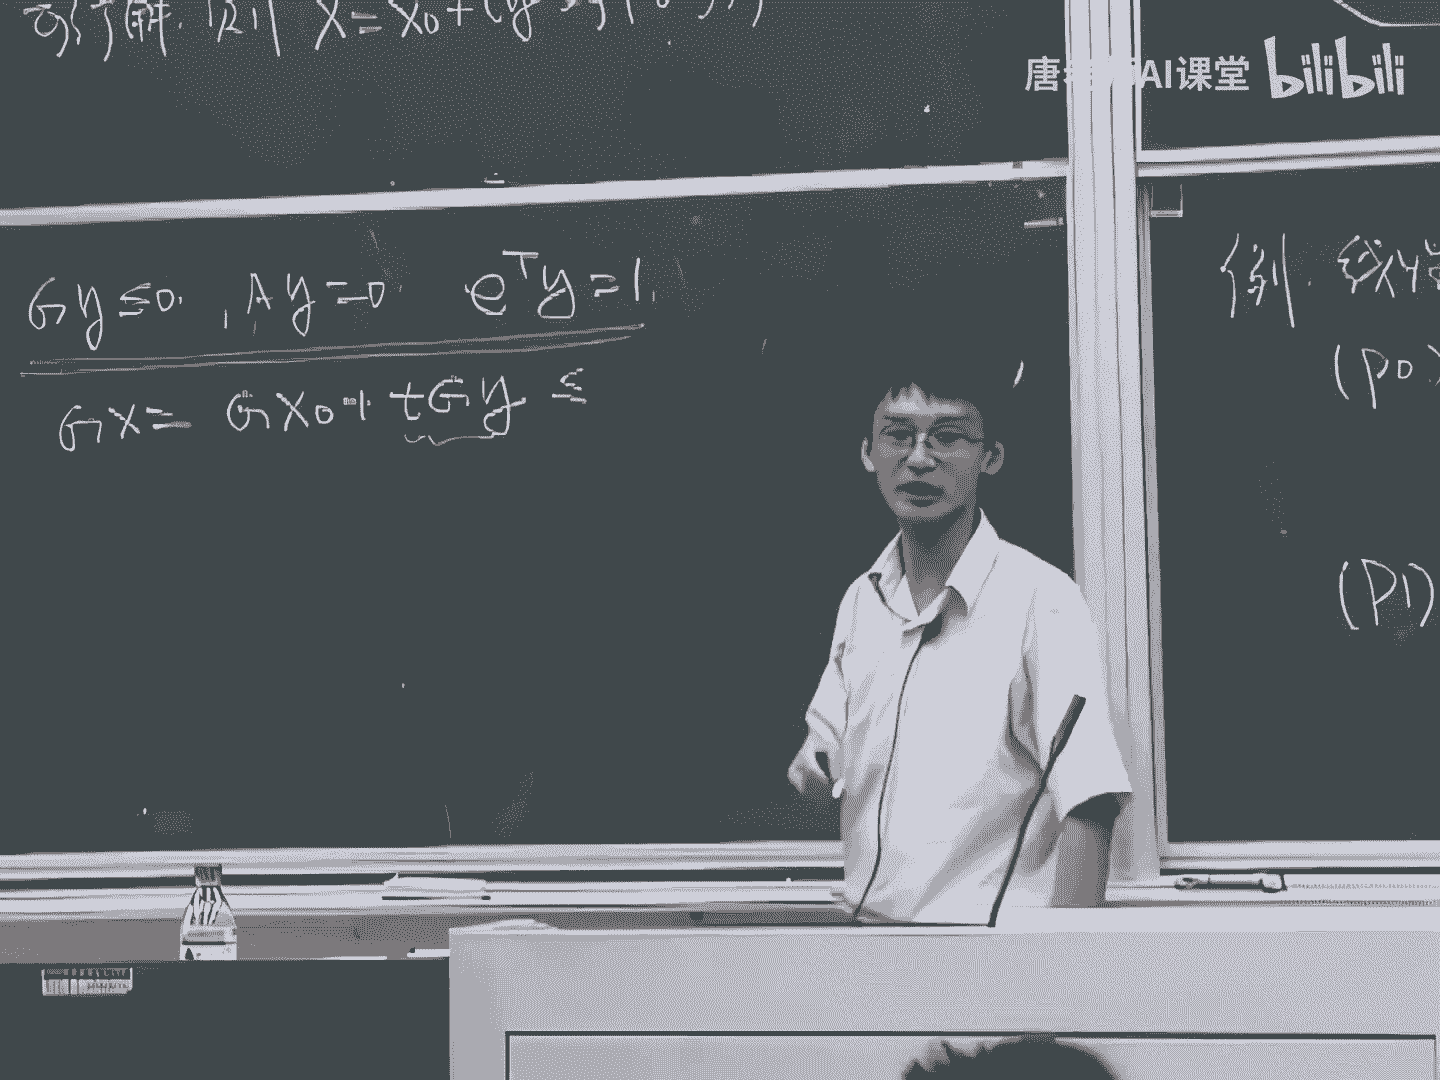 可行解. 则 X = X₀ + ty
唐 AI课堂 bilibili
Gy ≤ 0, Ay = 0 eᵀy = 1.
Gx = Gx₀ + tGy ≤
例. 线
(P0)
(P1)